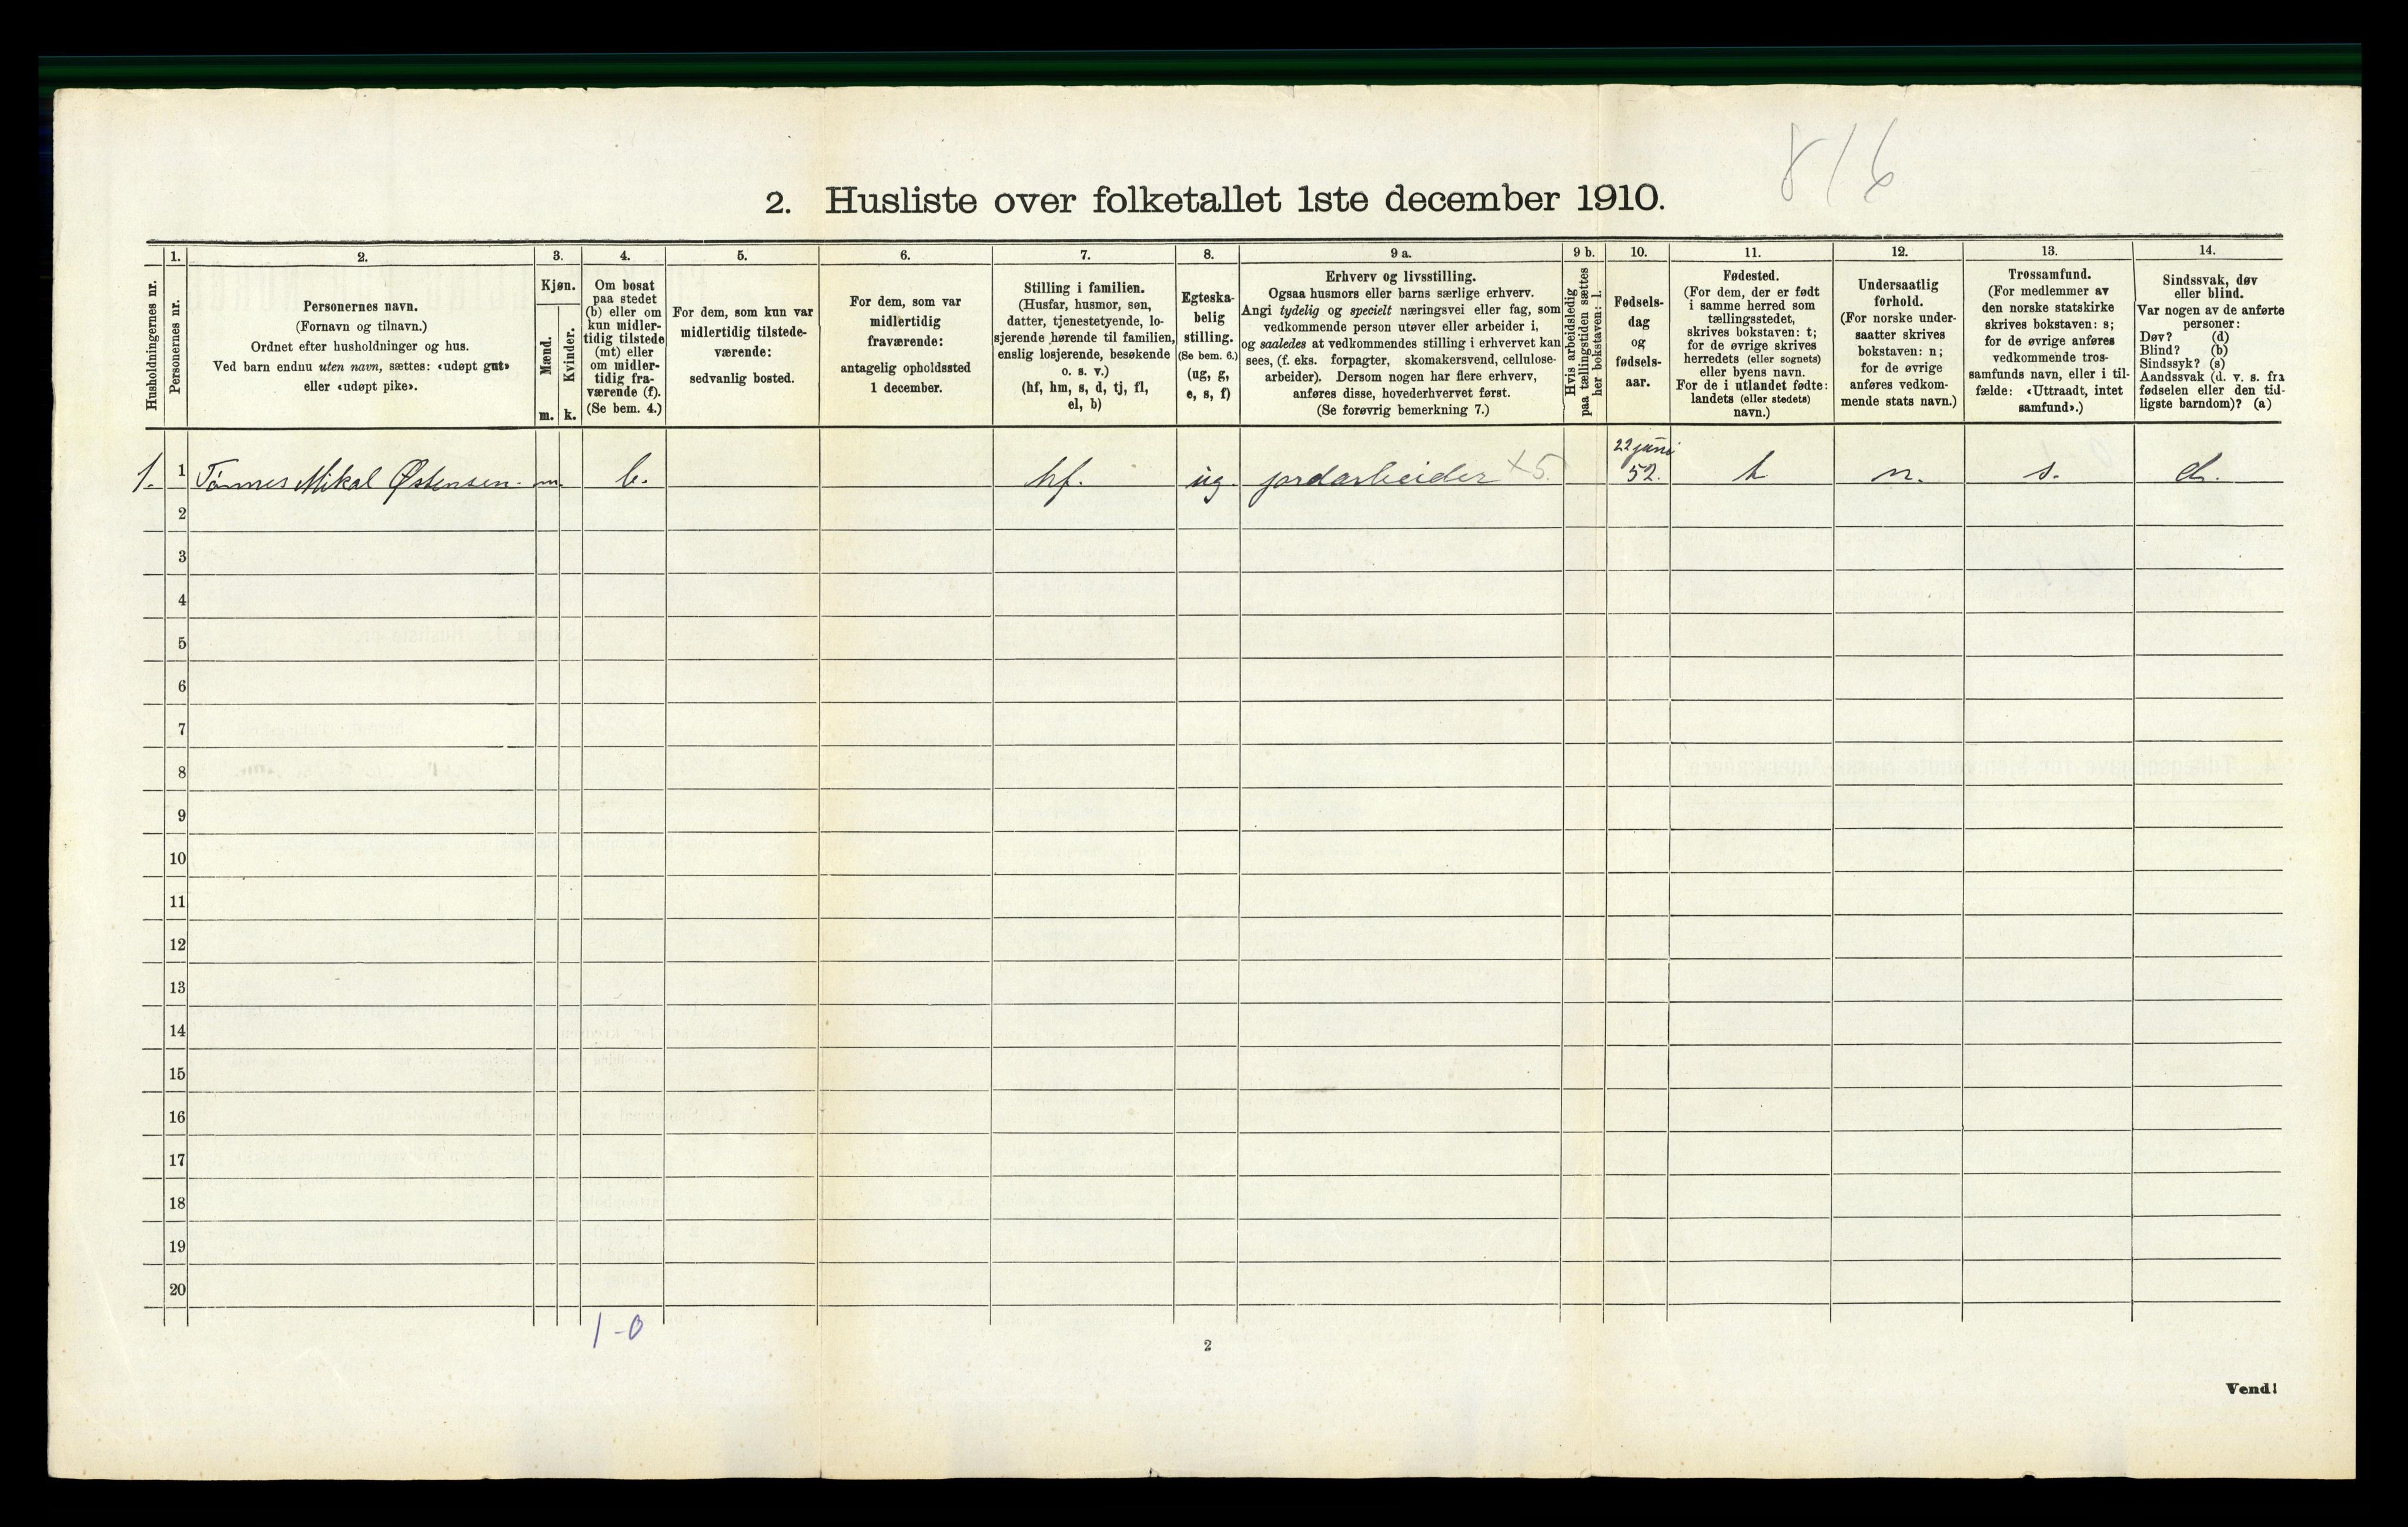 816
2. Husliste over folketallet 1ste december 1910.
Husholdningernes nr.
1.
Personernes nr.
2.
Personernes navn.
(Fornavn og tilnavn.)
Ordnet efter husholdninger og hus.
Ved barn endnu uten navn, sættes: «udøpt gut»
eller «udøpt pike».
3.
Kjøn.
Mænd.
m.
Kvinder.
k.
4.
Om bosat
paa stedet
(b) eller om
kun midler-
tidig tilstede
(mt) eller
om midler-
tidig fra-
værende (f).
(Se bem. 4.)
5.
For dem, som kun var
midlertidig tilstede-
værende:
sedvanlig bosted.
6.
For dem, som var
midlertidig
fraværende:
antagelig opholdssted
1 december.
7.
Stilling i familien.
(Husfar, husmor, søn,
datter, tjenestetyende, lo-
sjerende hørende til familien,
enslig losjerende, besøkende
o. s. v.)
(hf, hm, s, d, tj, fl,
el, b)
8.
Egteska-
belig
stilling.
(Se bem. 6.)
(ug, g,
e, s, f)
9 a.
Erhverv og livsstilling.
Ogsaa husmors eller barns særlige erhverv.
Angi tydelig og specielt næringsvei eller fag, som
vedkommende person utøver eller arbeider i,
og saaledes at vedkommendes stilling i erhvervet kan
sees, (f. eks. forpagter, skomakersvend, cellulose-
arbeider). Dersom nogen har flere erhverv,
anføres disse, hovederhvervet først.
(Se forøvrig bemerkning 7.)
9 b.
Hvis arbeidsledig
paa tællingstiden sættes
her bokstaven: l.
10.
Fødsels-
dag
og
fødsels-
aar.
11.
Fødested.
(For dem, der er født
i samme herred som
tællingsstedet,
skrives bokstaven: t;
for de øvrige skrives
herredets (eller sognets)
eller byens navn.
For de i utlandet fødte:
landets (eller stedets)
navn.)
12.
Undersaatlig
forhold.
(For norske under-
saatter skrives
bokstaven: n;
for de øvrige
anføres vedkom-
mende stats navn.)
13.
Trossamfund.
(For medlemmer av
den norske statskirke
skrives bokstaven: s;
for de øvrige anføres
vedkommende tros-
samfunds navn, eller i til-
fælde: «Uttraadt, intet
samfund».)
14.
Sindssvak, døv
eller blind.
Var nogen av de anførte
personer:
Døv? (d)
Blind? (b)
Sindssyk? (s)
Aandssvak (d. v. s. fra
fødselen eller den tid-
ligste barndom)? (a)
1. 1 Tønnes Mikal Østensen. m. b. hf. ug. jordarbeider +5. 22 juni 52. t n. s. d.
2
3
4
5
6
7
8
9
10
11
12
13
14
15
16
17
18
19
20
1-0
2
Vend!